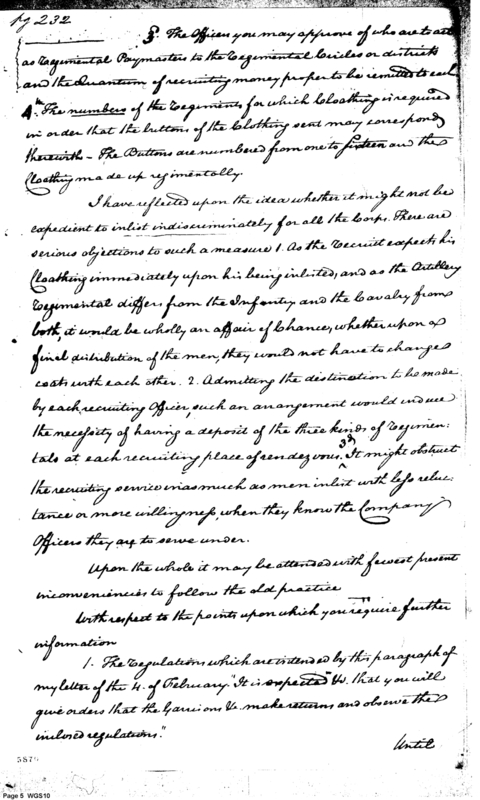 pg 232
3. The Officers you may approve of who are to act
as Regimental Paymasters to the Regimental Circles or districts
and the Quantum of recruiting money proper to be remitted to each
4th The numbers of the Regiments for which Cloathing is required
in order that the buttons of the Clothing sent may correspond
therewith – The Buttons are numbered from one to sixteen and the
Cloathing made up regimentally
I have reflected upon the idea whether it might not be
expedient to inlist indiscriminately for all the Corps. There are
serious objections to such a measure 1. As the Recruit expects his
Cloathing immediately upon his being inlisted, and as the Artillery
Regimental differs from the Infantry and the Cavalry from
both, it would be wholly an affair of Chance, whether upon a
final distribution of the men, they would not have to change
coats with each other. 2. Admitting the distinction to be made
by each recruiting Officer, such an arrangement would induce
the necessity of having a deposit of the three kinds of Regimen:
tals at each recruiting place of rendezvous. 3d It might obstruct
the recruiting service inasmuch as men inlist with less reluc:
tance or more willingness, when they know the Company
Officers they are to serve under.
Upon the whole it may be attended with fewest present
inconveniencies to follow the old practice
With respect to the points upon which you require further
information
1. The Regulations which are intended by this paragraph of
my letter of the 4. of February "It is expected &c. that you will
give orders that the Garrisons &c. make returns and observe the
inclosed regulations."
Until
5876
Page 5 WGS10